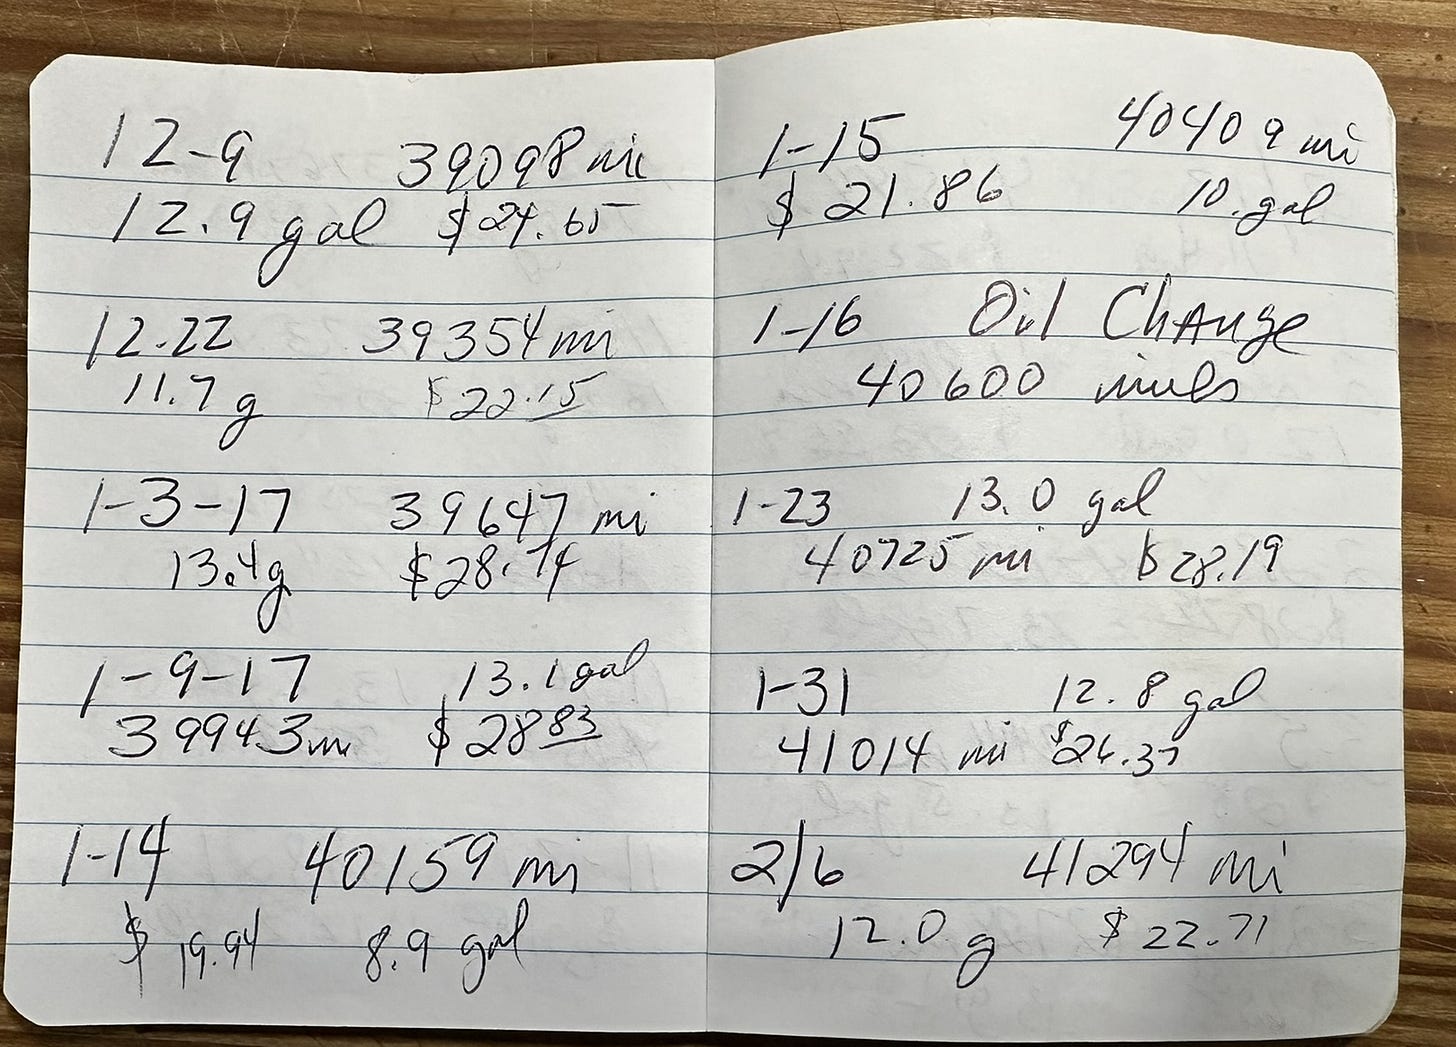 12-9 39098 mi
12.9 gal $24.65
12-22 39354 mi
11.7 g $22.15
1-3-17 39647 mi
13.4 g $28.74
1-9-17 13.1 gal
39943 mi $28 83
1-14 40159 mi
$ 19.94 8.9 gal
1-15 40409 mi
$ 21.86 10. gal
1-16 Oil Change
40600 miles
1-23 13.0 gal
40725 mi $28.19
1-31 12.8 gal
41014 mi $26.37
2/6 41294 mi
12.0 g $22.71